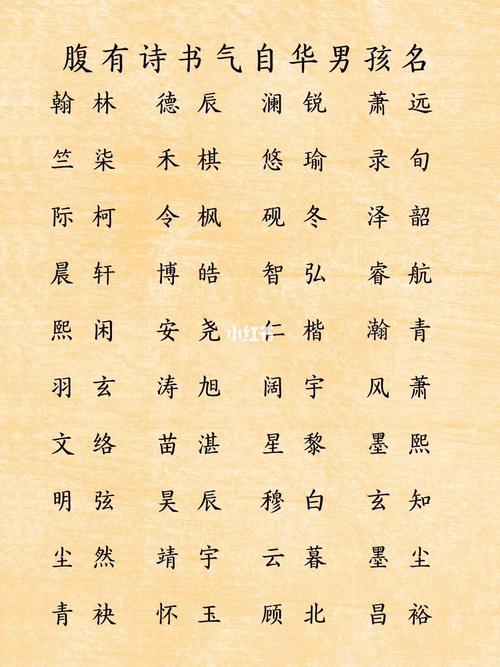 腹有诗书气自华男孩名
翰林 德辰 澜锐 萧远
竺柒 禾棋 悠瑜 录旬
际柯 令枫 砚冬 泽韶
晨轩 博皓 智弘 睿航
熙闲 安尧 仁楷 瀚青
小红书
羽玄 涛旭 阔宇 风萧
文络 苗湛 星黎 墨熙
明弦 昊辰 穆白 玄知
尘然 靖宇 云暮 墨尘
青袂 怀玉 顾北 昌裕